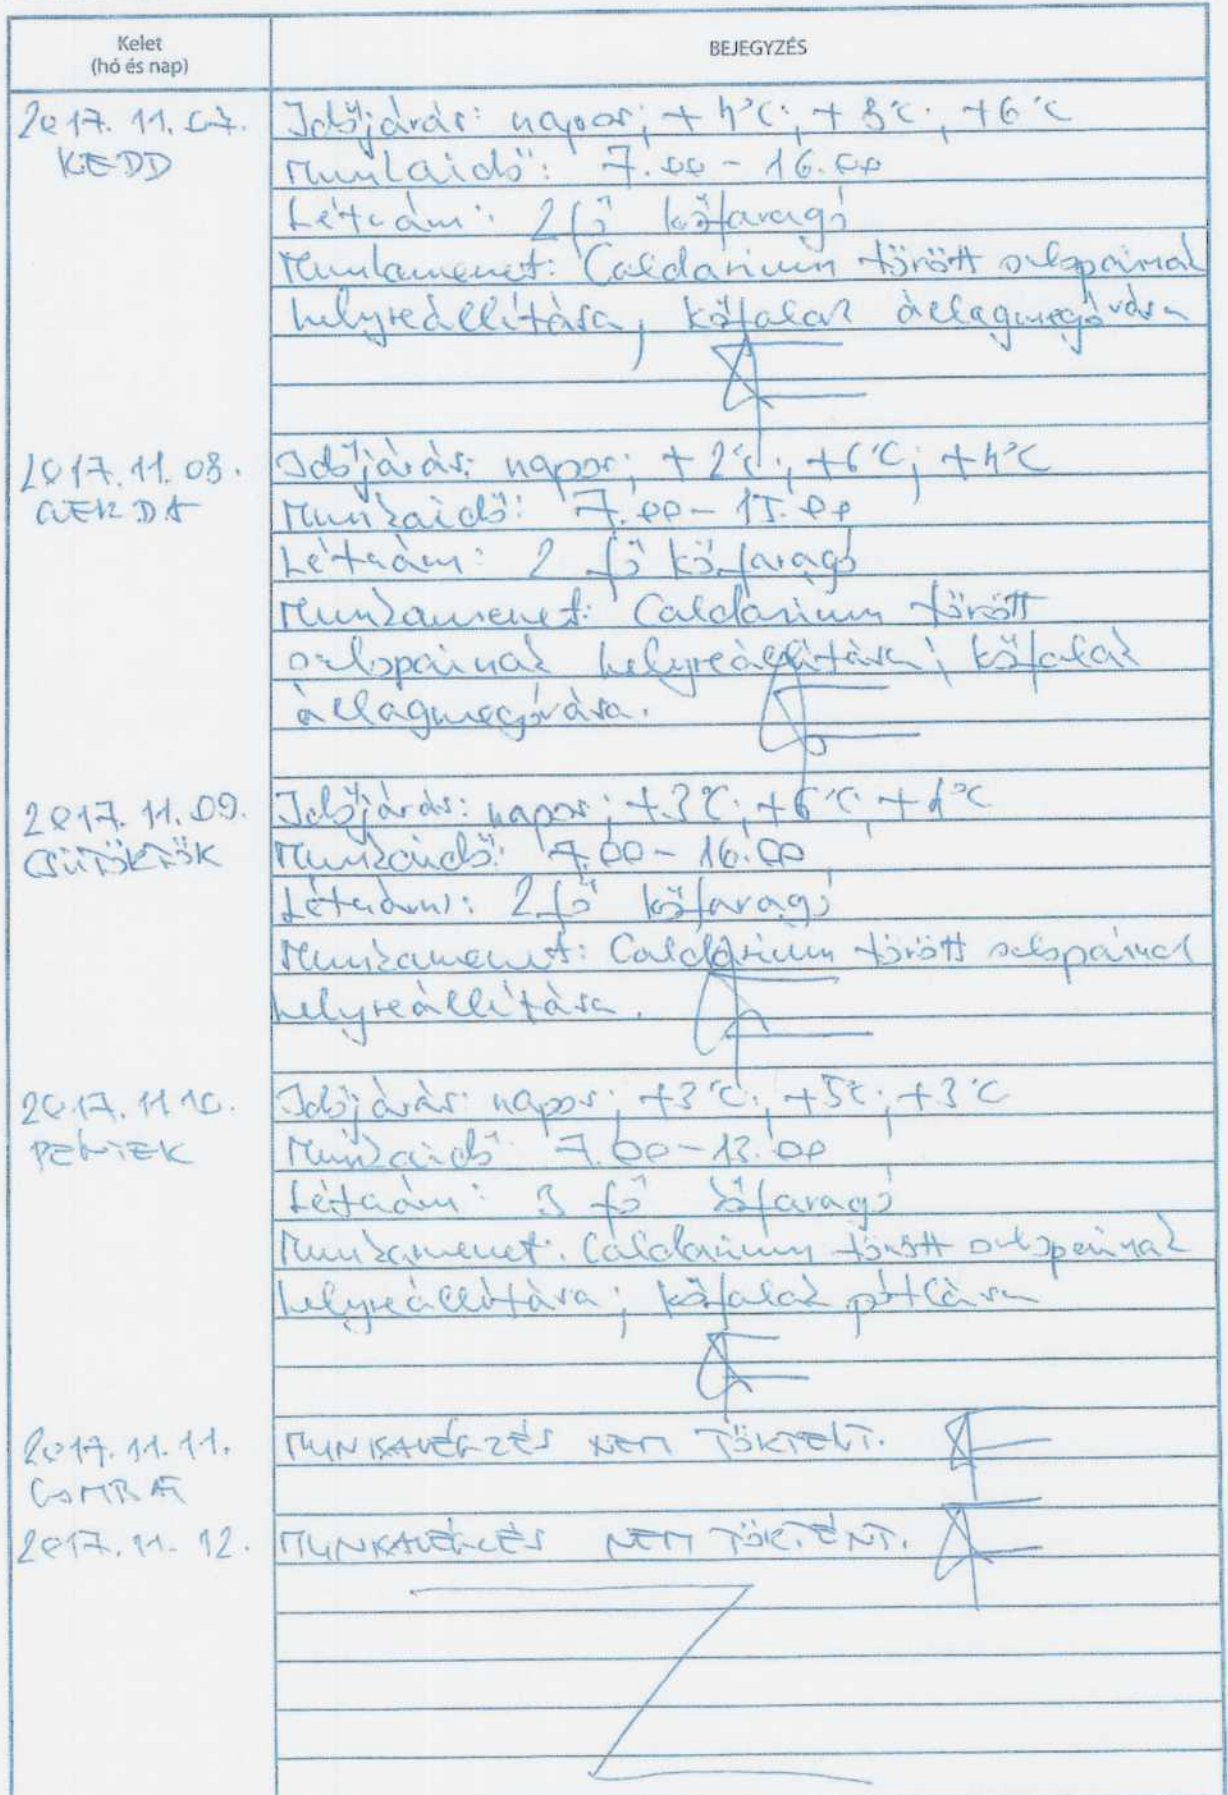 Kelet
(hó és nap)
BEJEGYZÉS
2017. 11. 07.
KEDD
Időjárás: napos; +4°C; +8°C; +6°C
Munkaidő: 7.00 - 16.00
Létszám: 2 fő kőfaragó
Munkamenet: Caldarium törött oszlopainak
helyreállítása, kőfalak állagmegóvása
2017. 11. 08.
SZERDA
Időjárás: napos; +2°C; +6°C; +4°C
Munkaidő: 7.00 - 15.00
Létszám: 2 fő kőfaragó
Munkamenet: Caldarium törött
oszlopainak helyreállítása; kőfalak
állagmegóvása.
2017. 11. 09.
CSÜTÖRTÖK
Időjárás: napos; +3°C; +6°C; +4°C
Munkaidő: 7.00 - 16.00
Létszám: 2 fő kőfaragó
Munkamenet: Caldarium törött oszlopainak
helyreállítása.
2017. 11 10.
PÉNTEK
Időjárás: napos; +3°C; +5°C; +3°C
Munkaidő: 7.00 - 13.00
Létszám: 3 fő kőfaragó
Munkamenet: Caldarium törött oszlopainak
helyreállítása; kőfalak pótlása
2017. 11. 11.
SZOMBAT
MUNKAVÉGZÉS NEM TÖRTÉNT.
2017. 11. 12.
MUNKAVÉGZÉS NEM TÖRTÉNT.